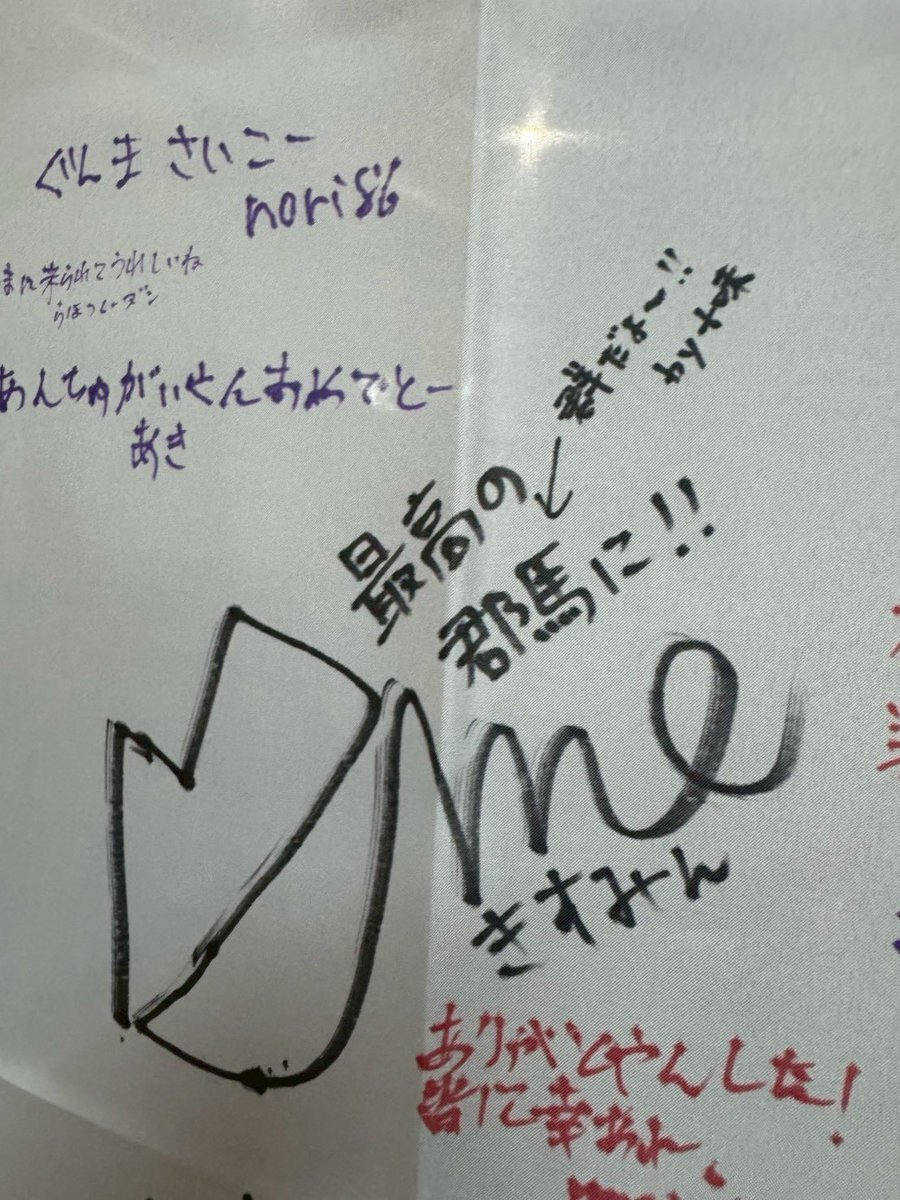 ぐんま さいこー
nori86
また来られてうれしいね
あんちゃがいせんおめでとー
あき
群だよ〜!!
by
←
最高の
郡馬に!!
me
きすみん
ありがとやんした!
皆に幸あれ